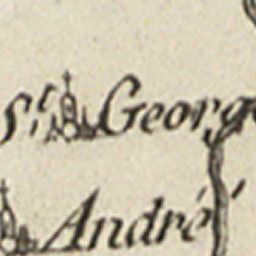 St. George
André